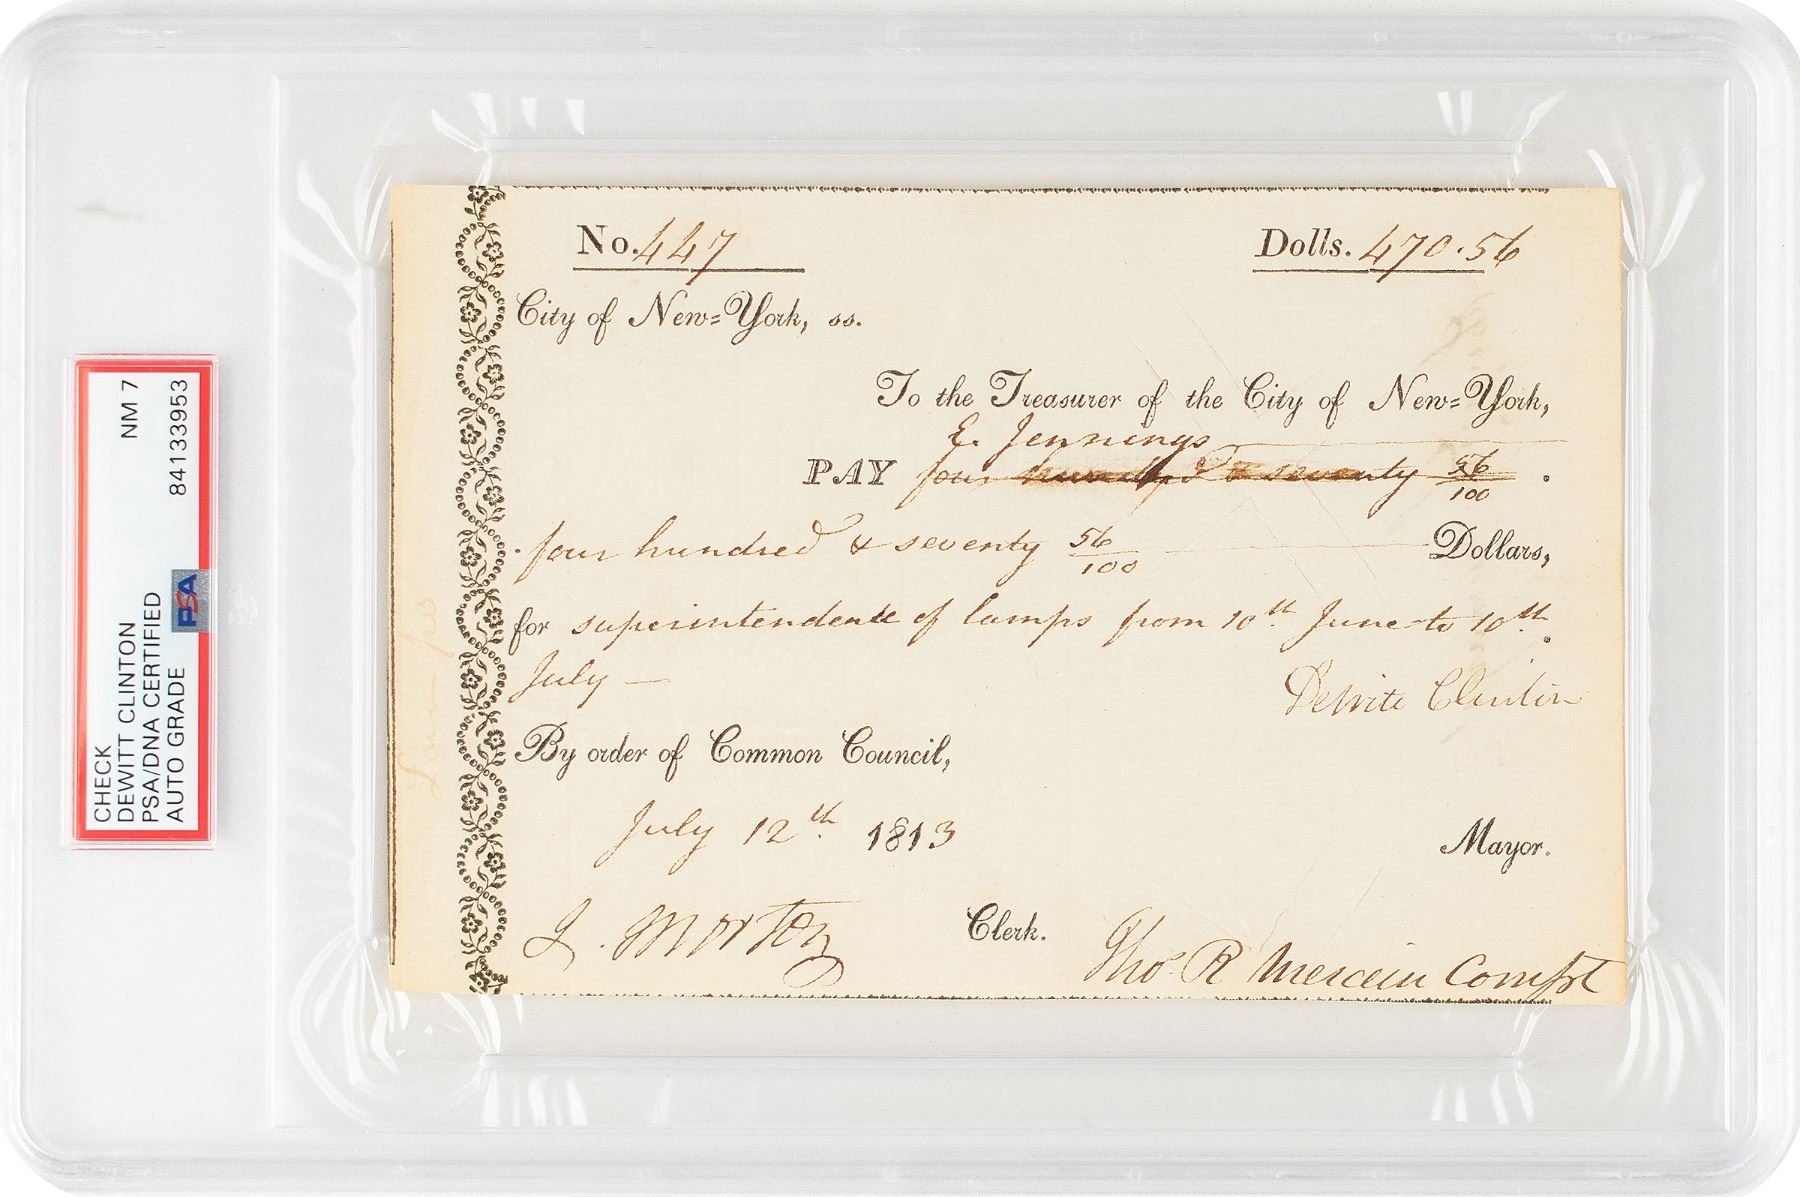 CHECK
DEWITT CLINTON
PSA/DNA CERTIFIED
AUTO GRADE
NM 7
84133953
PSA
No. 447
Dolls. 470.56
City of New=York, ss.
To the Treasurer of the City of New=York,
E. Jennings
PAY four hundred & seventy 56/100 .
four hundred & seventy 56/100 Dollars,
for superintendente of lamps from 10th June to 10th
July —
DeWitt Clinton
By order of Common Council,
July 12th 1813
Mayor.
J. Morton Clerk.
Tho. R Mercein Compt